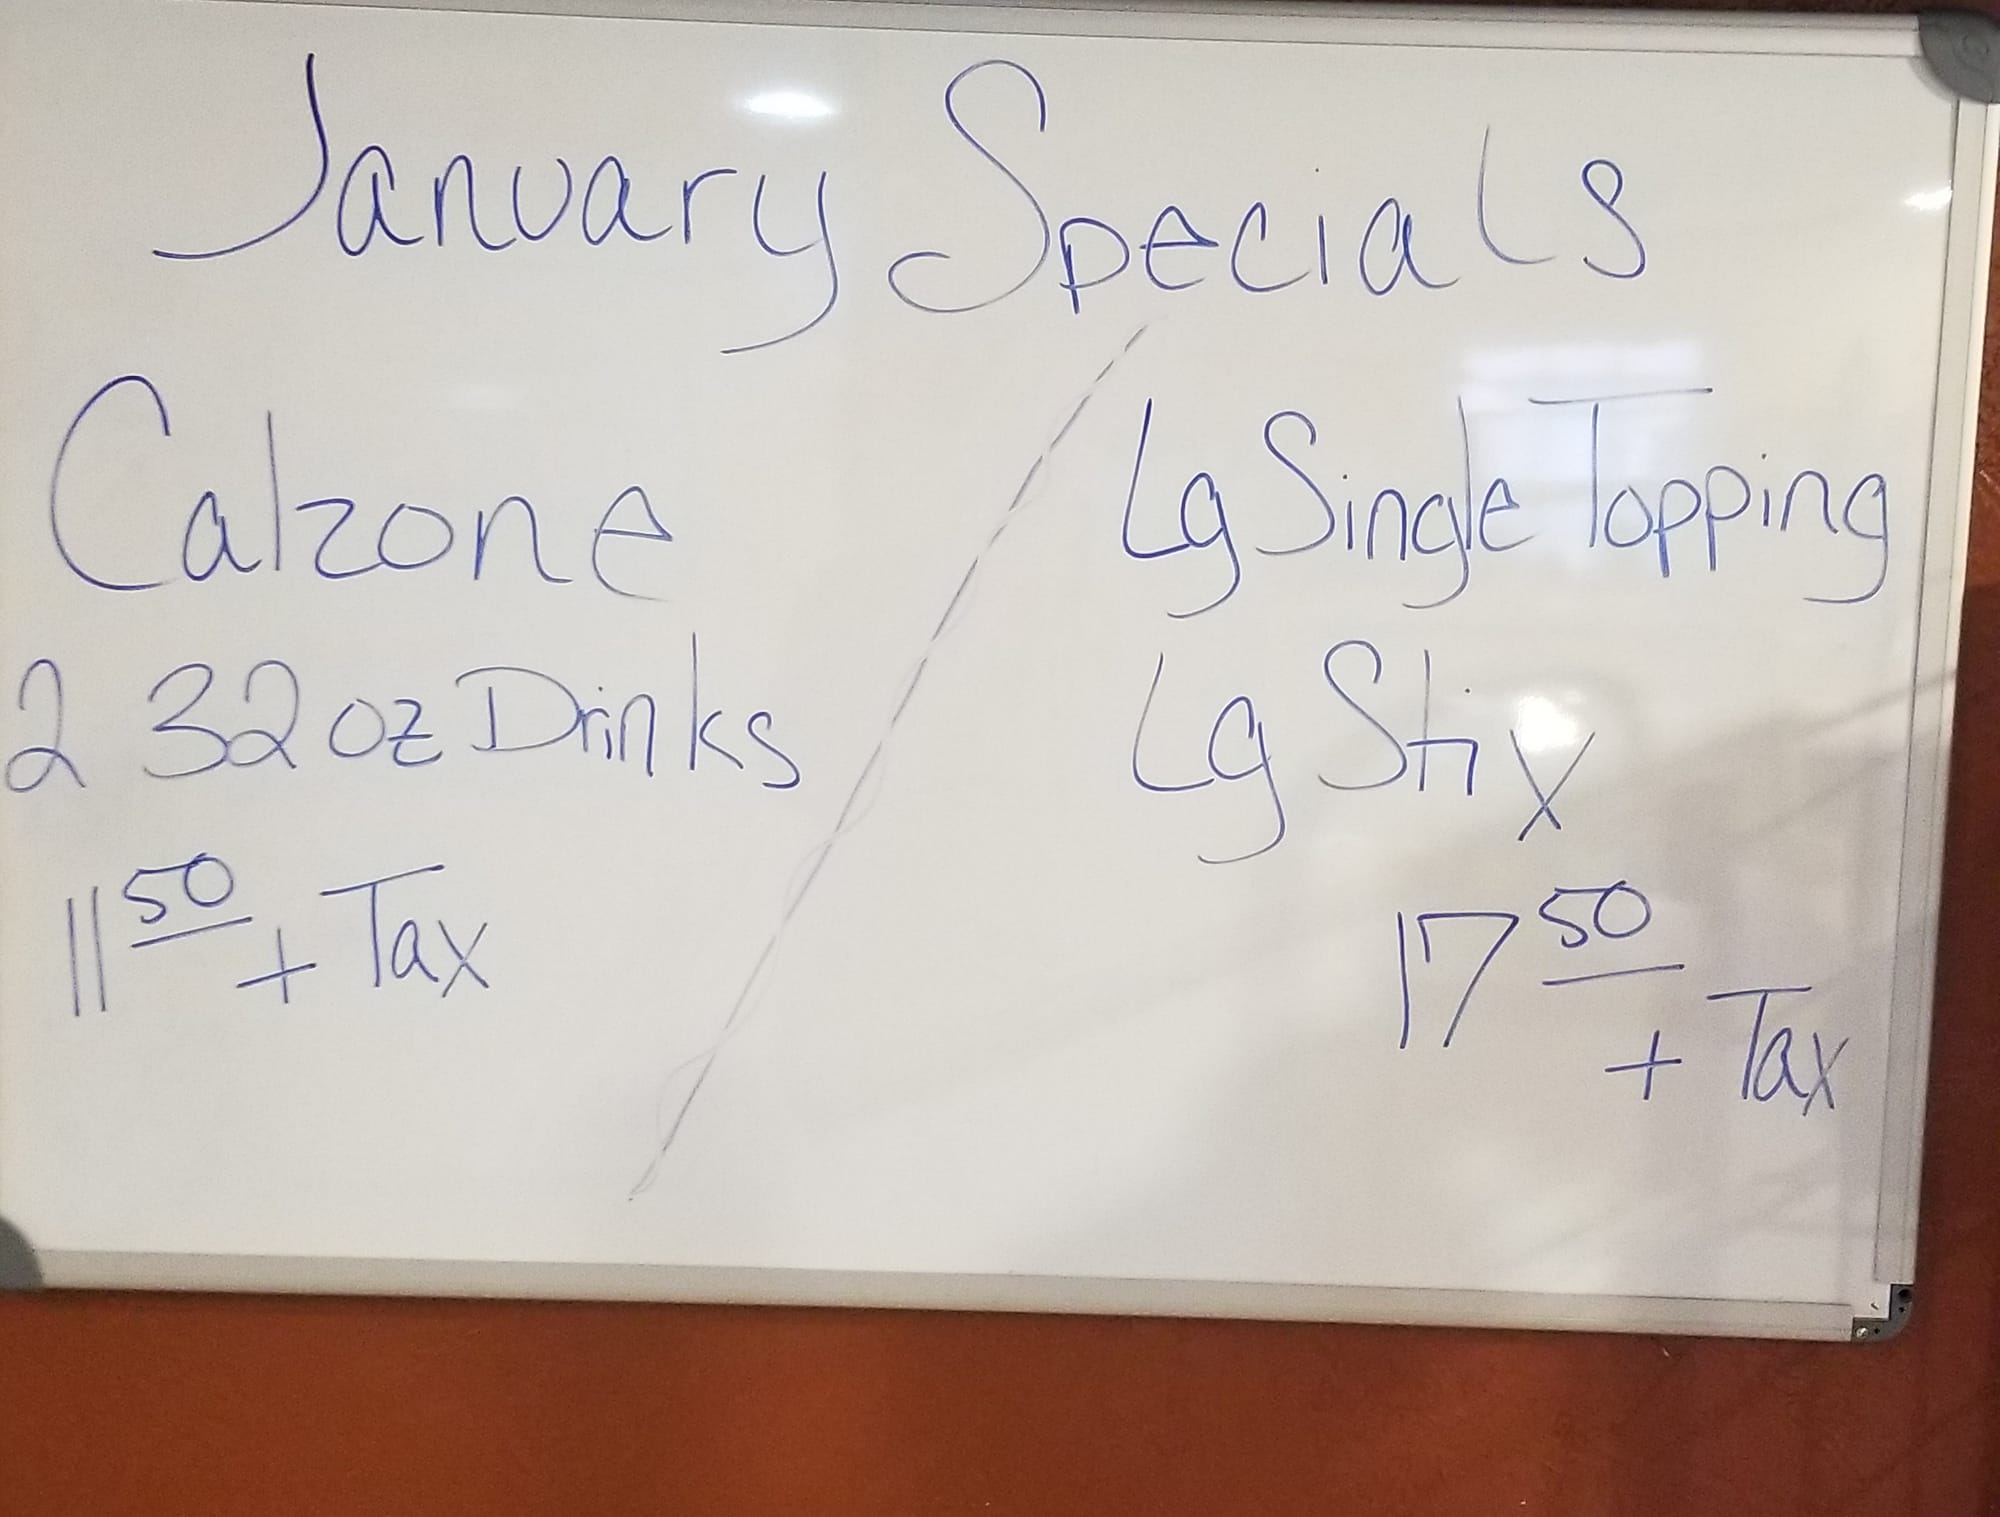 January Specials
Calzone
2 32oz Drinks
11 50 + Tax
Lg Single Topping
Lg Stix
17 50
+ Tax